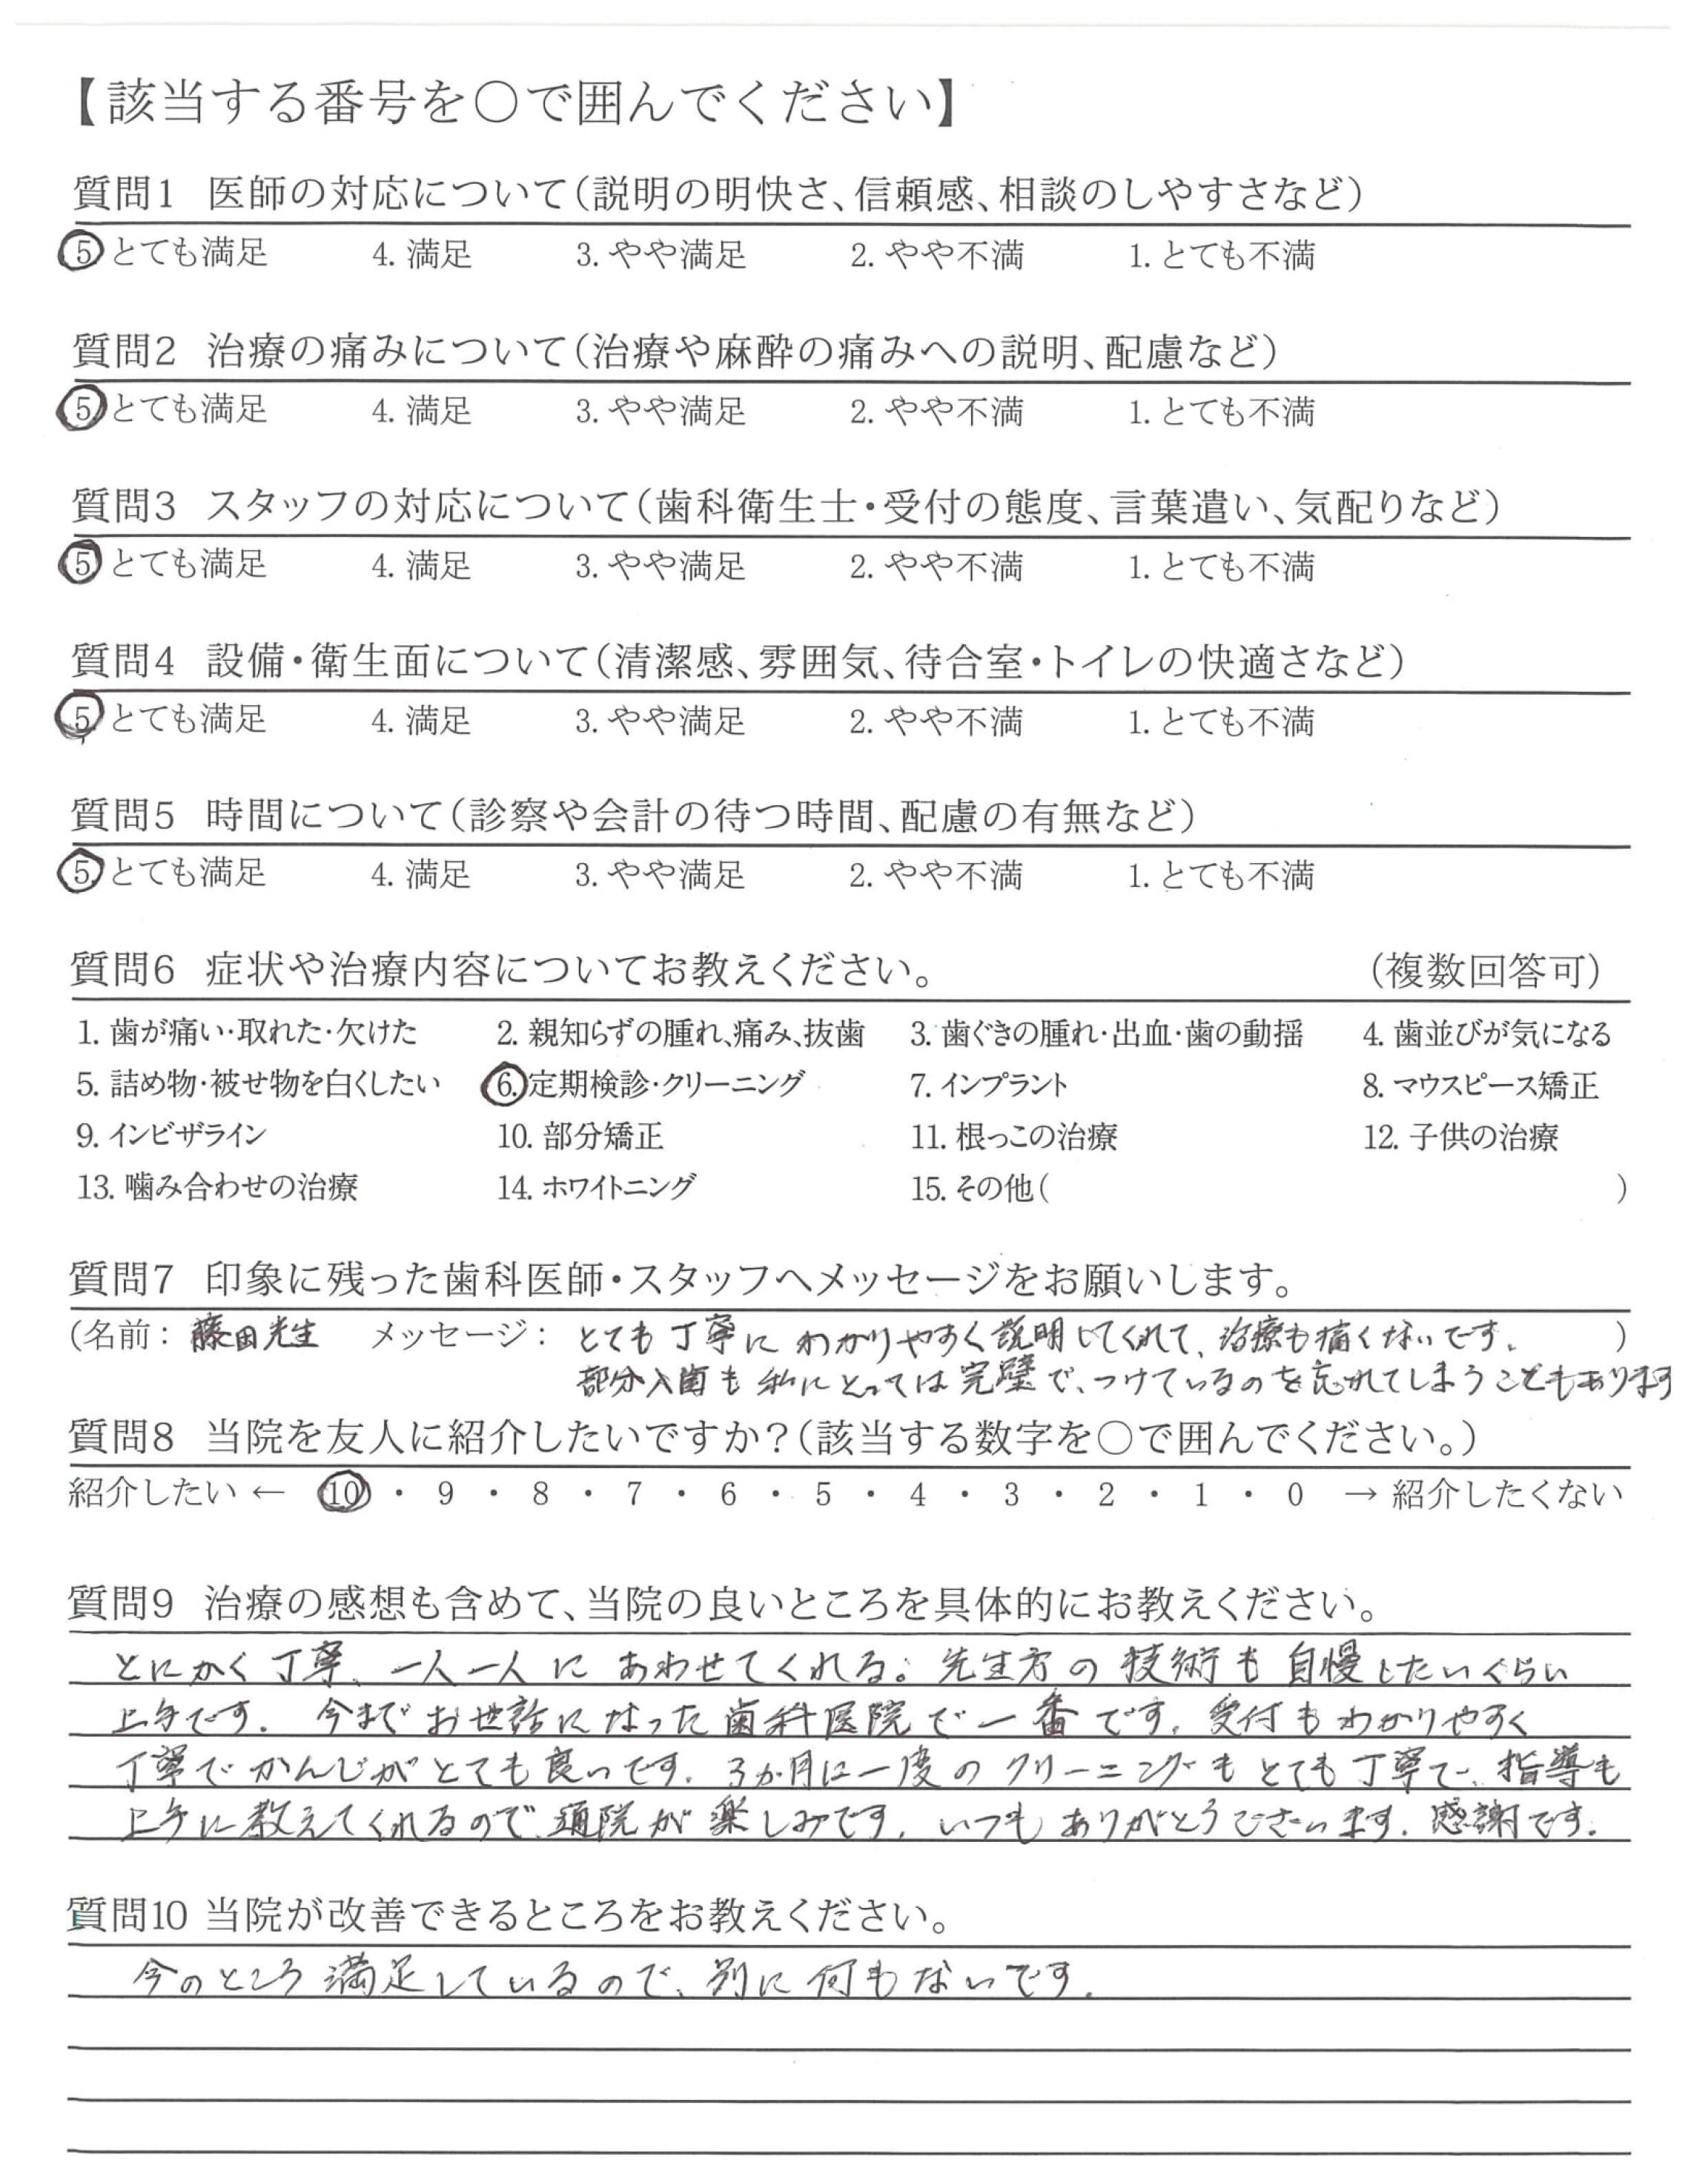 【該当する番号を〇で囲んでください】
質問1 医師の対応について(説明の明快さ、信頼感、相談のしやすさなど)
5 とても満足 4. 満足 3. やや満足 2. やや不満 1. とても不満
質問2 治療の痛みについて(治療や麻酔の痛みへの説明、配慮など)
5 とても満足 4. 満足 3. やや満足 2. やや不満 1. とても不満
質問3 スタッフの対応について(歯科衛生士・受付の態度、言葉遣い、気配りなど)
5 とても満足 4. 満足 3. やや満足 2. やや不満 1. とても不満
質問4 設備・衛生面について(清潔感、雰囲気、待合室・トイレの快適さなど)
5 とても満足 4. 満足 3. やや満足 2. やや不満 1. とても不満
質問5 時間について(診察や会計の待つ時間、配慮の有無など)
5. とても満足 4. 満足 3. やや満足 2. やや不満 1. とても不満
質問6 症状や治療内容についてお教えください。 (複数回答可)
1. 歯が痛い・取れた・欠けた 2. 親知らずの腫れ、痛み、抜歯 3. 歯ぐきの腫れ・出血・歯の動揺 4. 歯並びが気になる
5. 詰め物・被せ物を白くしたい 6. 定期検診・クリーニング 7. インプラント 8. マウスピース矯正
9. インビザライン 10. 部分矯正 11. 根っこの治療 12. 子供の治療
13. 噛み合わせの治療 14. ホワイトニング 15. その他( )
質問7 印象に残った歯科医師・スタッフへメッセージをお願いします。
(名前: 藤田先生 メッセージ: とても丁寧に わかりやすく説明してくれて、治療も痛くないです。 )
部分入歯も私にとっては完璧で、つけているのを忘れてしまうこともあります
質問8 当院を友人に紹介したいですか?(該当する数字を〇で囲んでください。)
紹介したい ← 10 ・ 9 ・ 8 ・ 7 ・ 6 ・ 5 ・ 4 ・ 3 ・ 2 ・ 1 ・ 0 → 紹介したくない
質問9 治療の感想も含めて、当院の良いところを具体的にお教えください。
とにかく丁寧、一人一人に あわせてくれる。先生方の技術も自慢したいくらい
上手です。今までお世話になった歯科医院で一番です。受付もわかりやすく
丁寧でかんじがとても良いです。3か月に一度のクリーニングもとても丁寧で、指導も
上手に教えてくれるので、通院が楽しみです。いつもありがとうございます。感謝です。
質問10 当院が改善できるところをお教えください。
今のところ満足しているので、別に何もないです。